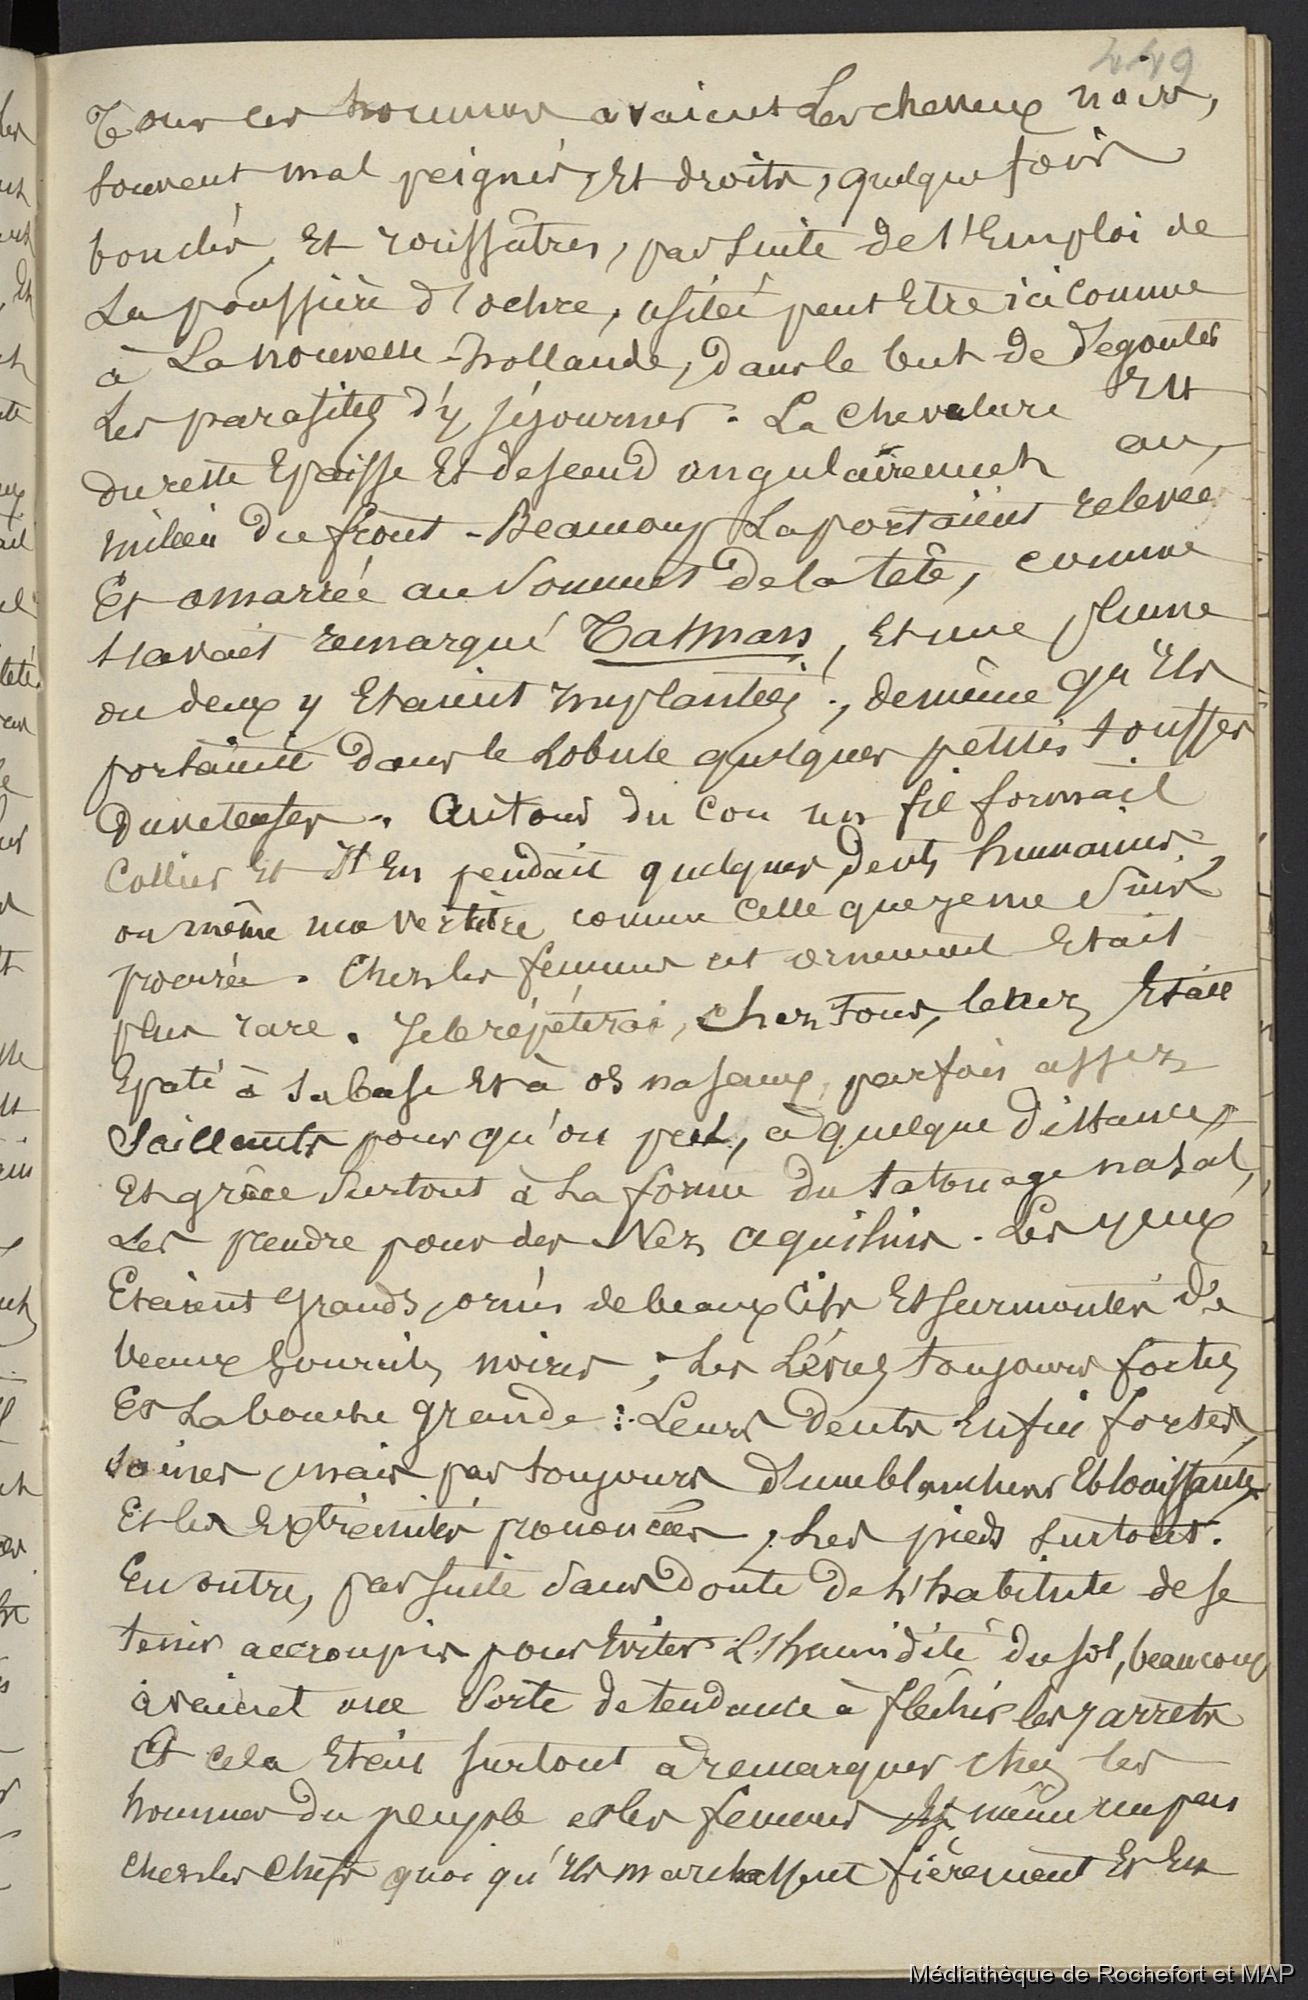 449
Tous les hommes avaient les cheveux noirs,
souvent mal peignés, Et droits, quelque fois
bouclés, Et roussâtres, par suite de l'Emploi de
La poussière d'ochre, usitée peut Etre ici comme
à La nouvelle-hollande, dans le but de dégouter
Les parasites d'y séjourner. La chevelure Est
du reste Epaisse Et descend angulairement au
milieu du front - Beaucoup La portaient relevée
Et amarrée au Sommet de la tête, comme
l'avait remarqué Tasman, Et une plume
ou deux y Etaient Implantées., de même qu'Ils
portaient dans le Lobule quelques petites touffes
duveteuses. Autour du cou un fil formait
Collier Et Il En pendait quelques dents humaines
ou même une vertèbre comme celle que je me suis
procurée. Chez les femmes cet ornement Etait
plus rare. Je le répéterai, chez tous, le nez Etait
Epaté à sa base Et à os nasaux parfois assez
Saillants pour qu'on peut, à quelque distance
Et grâce surtout à La forme du tatouage nasal,
Les prendre pour des Nez aquilins. Les yeux
Etaient grands, ornés de beaux Cils Et surmontés de
beaux Sourcils noirs ; Les Lèvres toujours fortes
Et La bouche grande : Leurs dents Enfin fortes,
saines, mais pas toujours d'une blancheur Eblouissante
Et les Extrémités prononcées, Les pieds surtout.
En outre, par suite sans doute de l'habitude de se
tenir accroupis pour Eviter L'humidité du sol, beaucoup
avaient une Sorte de tendance à fléchir les jarrets
Et cela Etait surtout à remarquer chez les
hommes du peuple et les femmes Et même un peu
chez les Chefs quoi qu'Ils marchassent fièrement Et En
Médiathèque de Rochefort et MAP